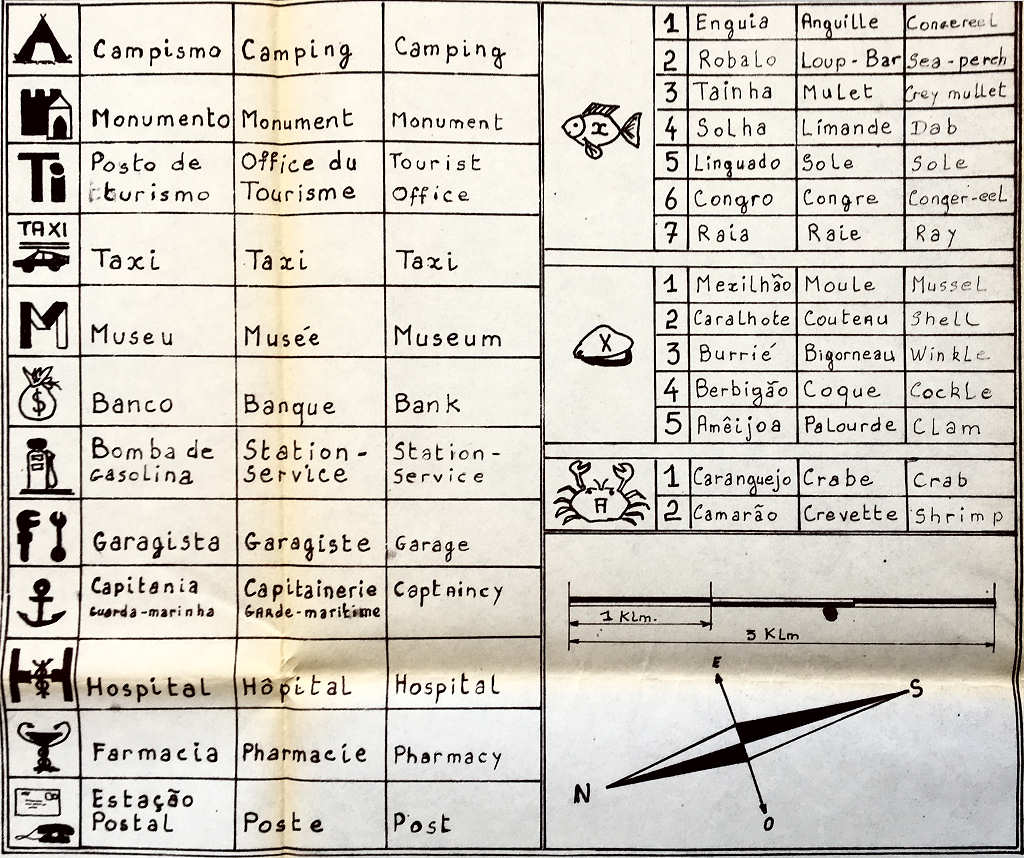 Campismo Camping Camping
Monumento Monument Monument
Ti Posto de Office du Tourist
turismo Tourisme Office
TAXI
Taxi Taxi Taxi
M Museu Musée Museum
$ Banco Banque Bank
Bomba de Station- Station-
Gasolina Service Service
Garagista Garagiste Garage
Capitania Capitainerie Captaincy
Guarda-marinha GArde-maritime
H Hospital Hôpital Hospital
Farmacia Pharmacie Pharmacy
Estação
Postal Poste Post
x
1 Enguia Anguille
2 Robalo Loup-Bar Sea-perch
3 Tainha Mulet Grey mullet
4 Solha Limande Dab
5 Linguado Sole Sole
6 Congro Congre Conger-eel
7 Raia Raie Ray
X
1 Mexilhão Moule Mussel
2 Caralhote Couteau Shell
3 Burrié Bigorneau Winkle
4 Berbigão Coque Cockle
5 Amêijoa Palourde Clam
A
1 Caranguejo Crabe Crab
2 Camarão Crevette Shrimp
1 Klm.
3 Klm
E
S
N
O